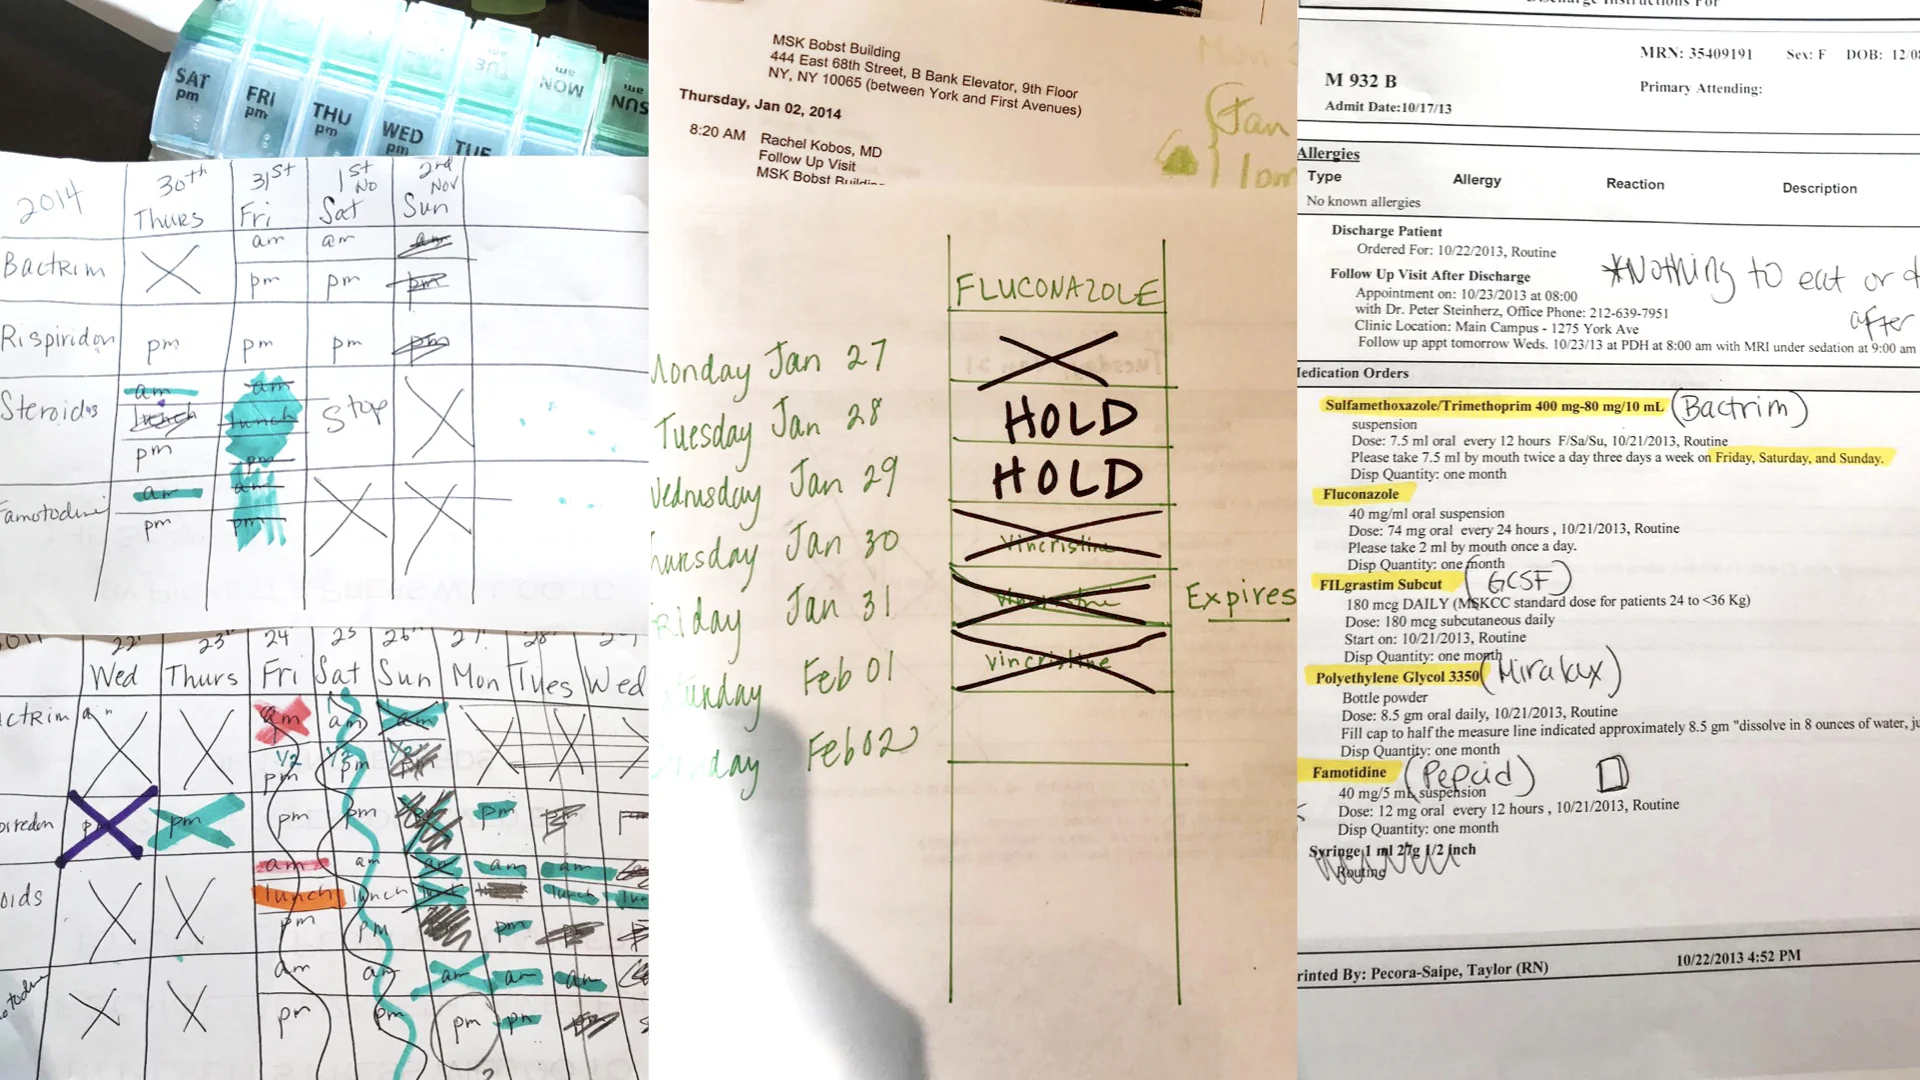 SAT
pm
FRI
pm
THU
pm
WED
pm
TUE
TUE
am
MON
am
SUN
am
2014
30th
Thurs
31st
Fri
1st
No
Sat
2nd
Nov
Sun
Bactrim
am
am
am
pm
pm
pm
Rispiridon
pm
pm
pm
pm
Steroids
am
am
lunch
lunch
pm
pm
Stop
Famotodine
am
am
pm
pm
22
23
24
25
26
27
28
Wed
Thurs
Fri
Sat
Sun
Mon
Tues
Wed
actrim
am
am
am
1/2
1/2
1/2
pm
pm
pm
pm
pm
pm
pm
pm
oids
am
am
am
am
am
lunch
lunch
lunch
lunch
pm
pm
pm
pm
am
am
am
am
am
pm
pm
pm
pm
pm
MSK Bobst Building
444 East 68th Street, B Bank Elevator, 9th Floor
NY, NY 10065 (between York and First Avenues)
Thursday, Jan 02, 2014
8:20 AM Rachel Kobos, MD
Follow Up Visit
MSK Bobst Building
Jan
FLUCONAZOLE
Monday Jan 27
Tuesday Jan 28 HOLD
Wednesday Jan 29 HOLD
hursday Jan 30 Vincristine
riday Jan 31 Vincristine Expires
Feb 01 Vincristine
nday Feb 02
Discharge Instructions For
MRN: 35409191 Sex: F DOB: 12/0
M 932 B
Primary Attending:
Admit Date:10/17/13
Allergies
Type Allergy Reaction Description
No known allergies
Discharge Patient
Ordered For: 10/22/2013, Routine
Follow Up Visit After Discharge
*Nothing to eat or d
after
Appointment on: 10/23/2013 at 08:00
with Dr. Peter Steinherz, Office Phone: 212-639-7951
Clinic Location: Main Campus - 1275 York Ave
Follow up appt tomorrow Weds. 10/23/13 at PDH at 8:00 am with MRI under sedation at 9:00 am
Medication Orders
Sulfamethoxazole/Trimethoprim 400 mg-80 mg/10 mL (Bactrim)
suspension
Dose: 7.5 ml oral every 12 hours F/Sa/Su, 10/21/2013, Routine
Please take 7.5 ml by mouth twice a day three days a week on Friday, Saturday, and Sunday.
Disp Quantity: one month
Fluconazole
40 mg/ml oral suspension
Dose: 74 mg oral every 24 hours , 10/21/2013, Routine
Please take 2 ml by mouth once a day.
Disp Quantity: one month
FILgrastim Subcut (GCSF)
180 mcg DAILY (MSKCC standard dose for patients 24 to <36 Kg)
Dose: 180 mcg subcutaneous daily
Start on: 10/21/2013, Routine
Disp Quantity: one month
Polyethylene Glycol 3350 (Miralax)
Bottle powder
Dose: 8.5 gm oral daily, 10/21/2013, Routine
Fill cap to half the measure line indicated approximately 8.5 gm "dissolve in 8 ounces of water, ju
Disp Quantity: one month
Famotidine (Pepcid)
40 mg/5 mL suspension
Dose: 12 mg oral every 12 hours , 10/21/2013, Routine
Disp Quantity: one month
Syringe 1 ml 27g 1/2 inch
Routine
rinted By: Pecora-Saipe, Taylor (RN) 10/22/2013 4:52 PM